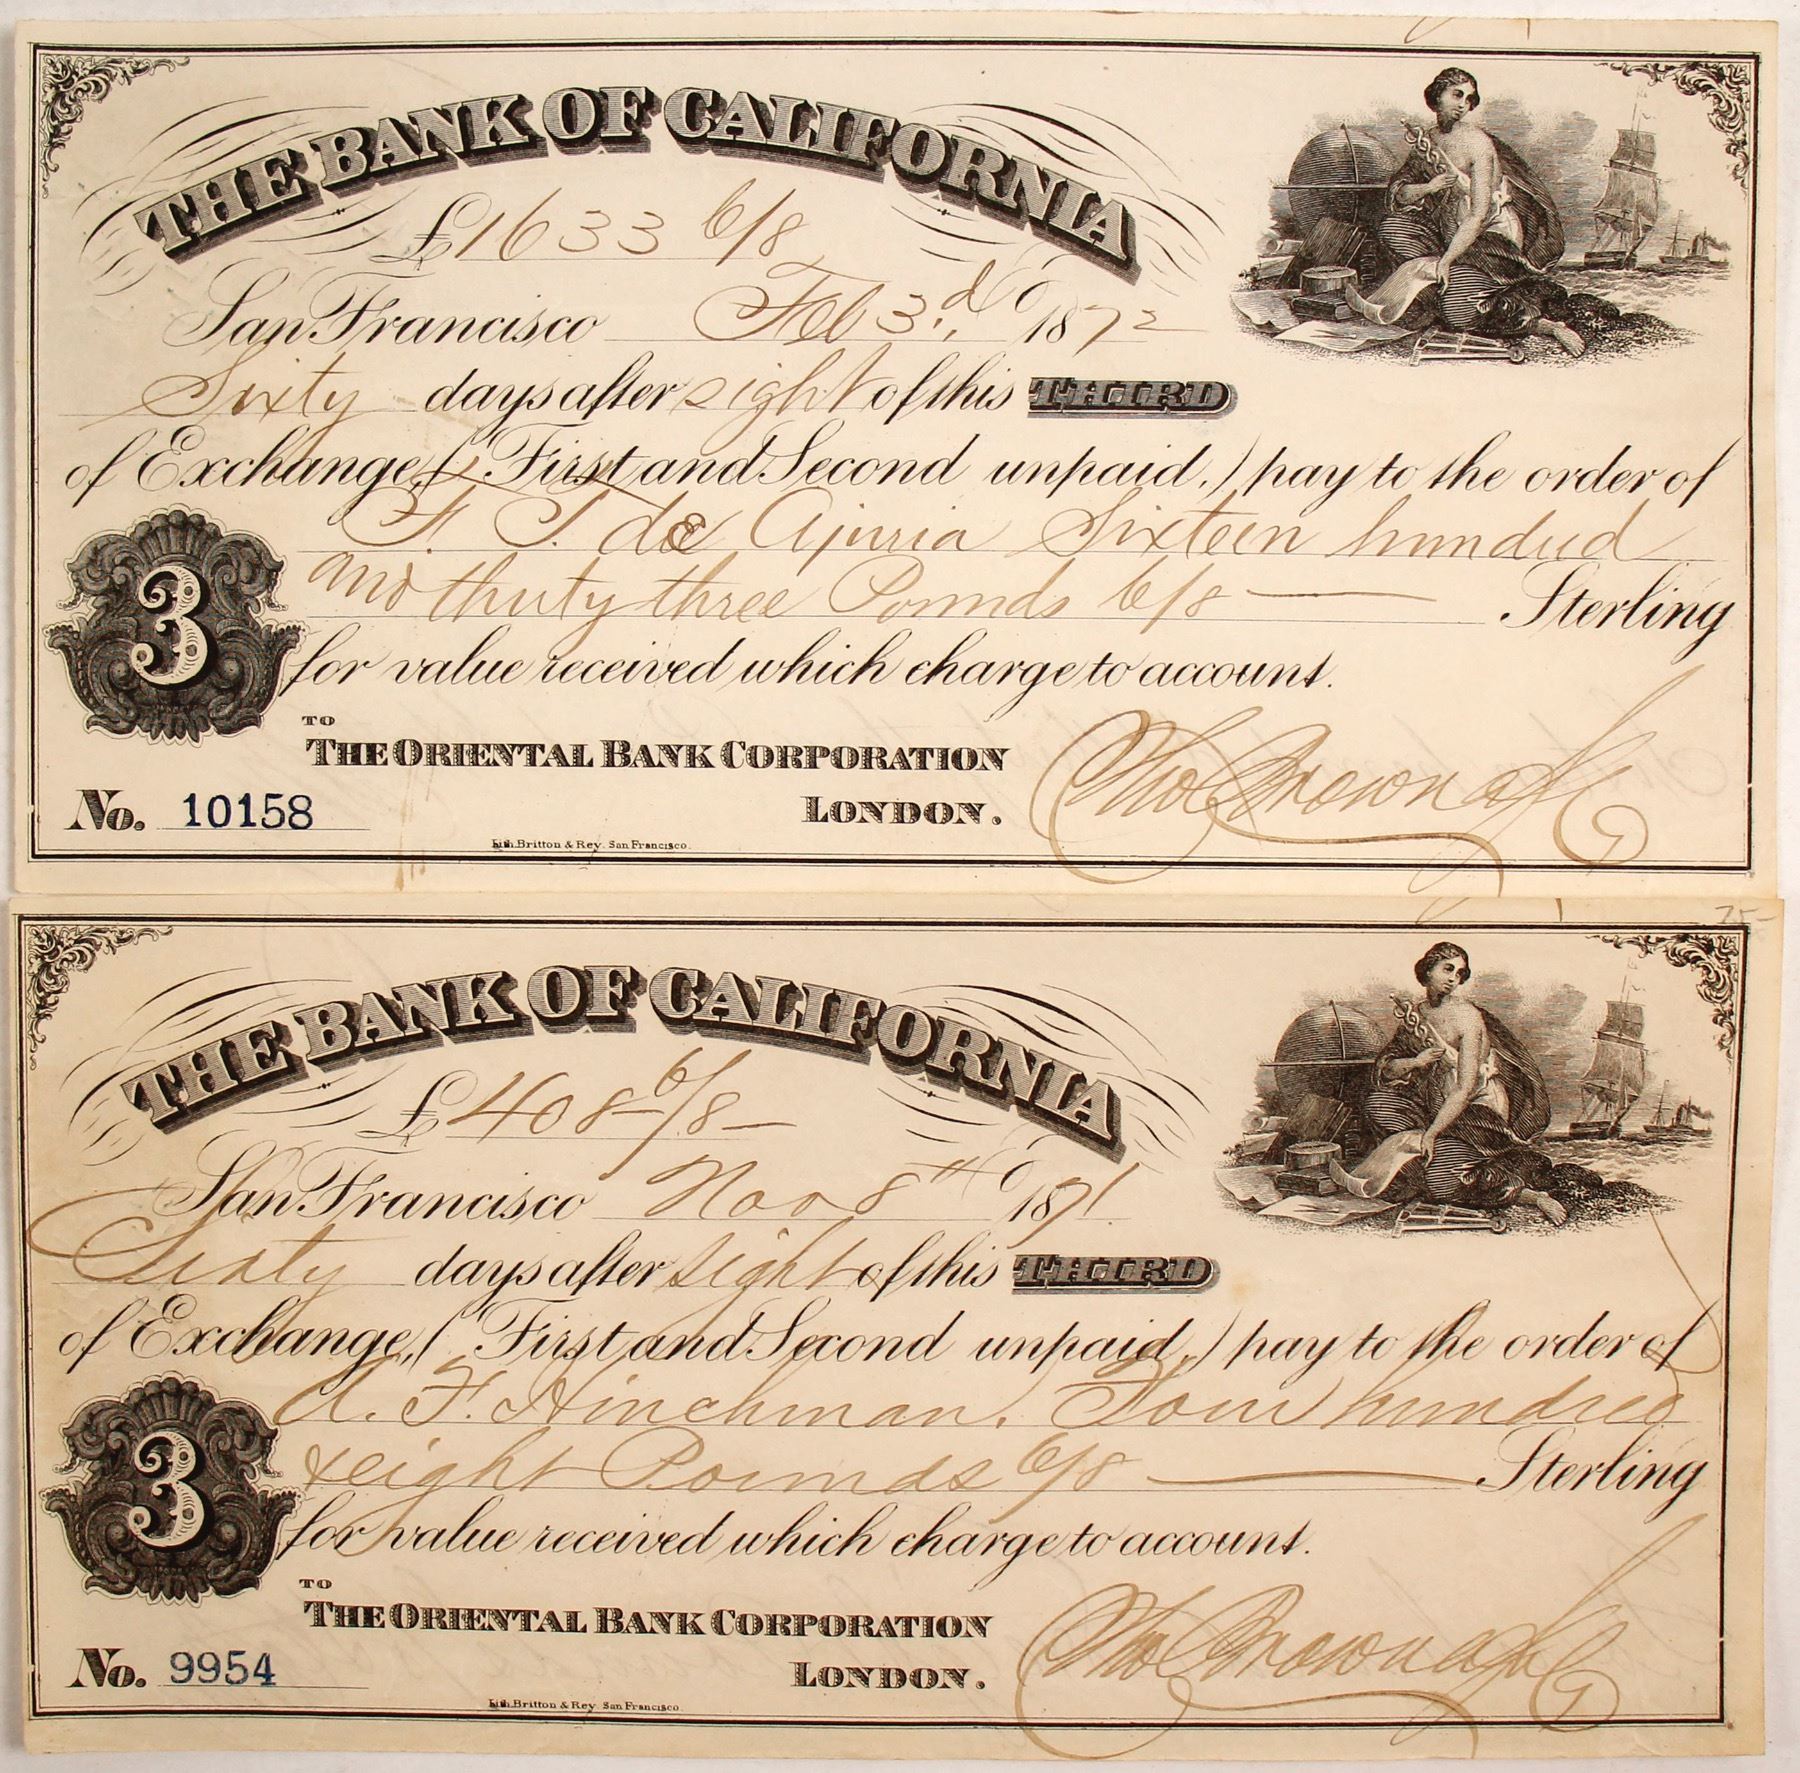 THE BANK OF CALIFORNIA
£1633 6/8
San Francisco Feb 3d 1872
Sixty days after sight of this THIRD
of Exchange, (First and Second unpaid,) pay to the order of
F. T. de Ajuria Sixteen hundred
and thirty three Pounds 6/8 Sterling
3
for value received which charge to account.
TO
THE ORIENTAL BANK CORPORATION
LONDON.
No. 10158
Thos Brown
Lith. Britton & Rey. San Francisco.
75-
THE BANK OF CALIFORNIA
£408-6/8-
San Francisco Nov 8th 1871.
Sixty days after sight of this THIRD
of Exchange, (First and Second unpaid,) pay to the order of
A. F. Hinchman. Four hundred
& eight Pounds 6/8 Sterling
3
for value received which charge to account.
TO
THE ORIENTAL BANK CORPORATION
LONDON.
No. 9954
Thos Brown
Lith. Britton & Rey. San Francisco.